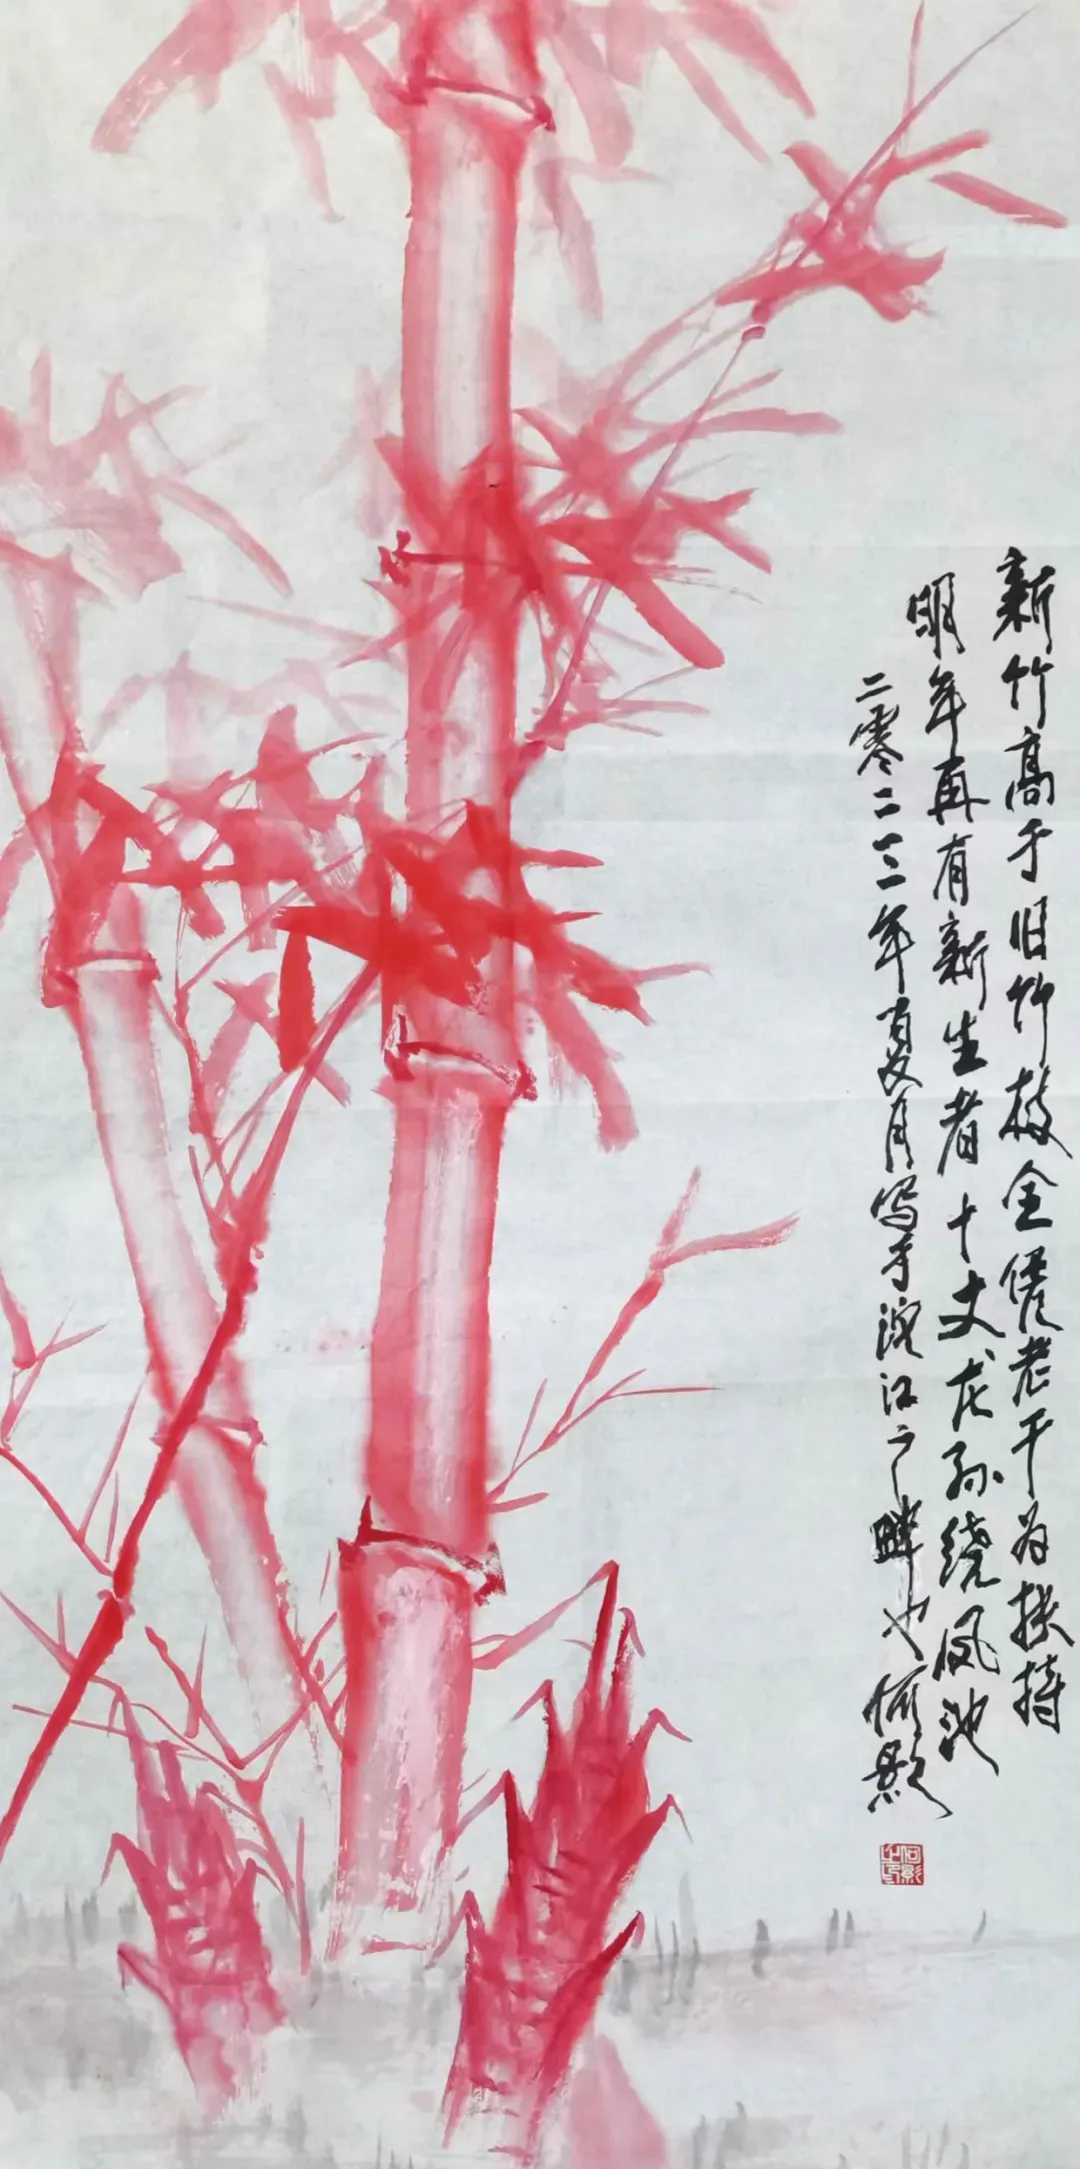 新竹高于旧竹枝全凭老干为扶持
明年再有新生者十丈龙孙绕凤池
二零二三年夏月写于江之畔也何影
何影之印